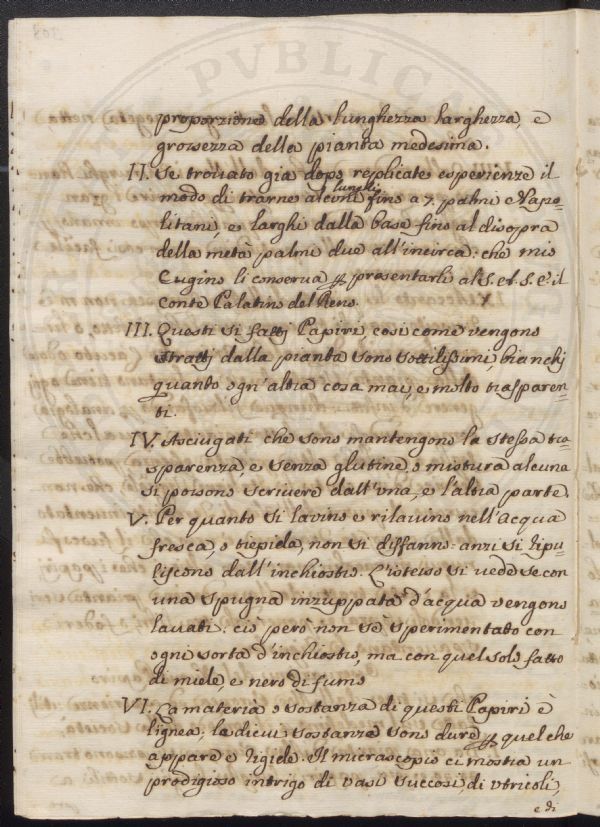 proporzione della lunghezza larghezza, e
grossezza della pianta medesima.
II. Se trouato già dopo replicate esperienze il
modo di trarne alcuni lunghi fino a 7. palmi Napo=
litani, e larghi dalla base fino al disopra
della metà palmi due all'incirca: che mio
Cugino li conserua per presentarli al S. et. S. E. il
Conte Palatino del Reno.
III. Questi si fatti Papiri, così come vengono
stratti dalla pianta sono sottilissimi, bianchi
quanto ogn'altra cosa mai, e molto trasparen=
ti.
IV. Asciugati che sono mantengono la stessa tra=
sparenza, e senza glutine, o mistura alcuna
si possono scriuere dall'vna, e l'altra parte.
V. Per quanto si lavino e rilauino nell'acqua
fresca, o tiepida, non si disfanno: anzi si ripu=
liscono dall'inchiostro. L'istesso si vede se con
vna spugna inzuppata d'acqua vengono
lauati: ciò però non s'è sperimentato con
ogni sorta d'inchiostro, ma con quel solo fatto
di miele, e nero di fumo
VI. La materia o sostanza di questi Papiri è
lignea; la di cui sostanza sono dure per quel che
appare e rigide. Il microscopio ci mostra un
prodigioso intrigo di vasi succosi, di vtricoli,
e di
PVBLIC